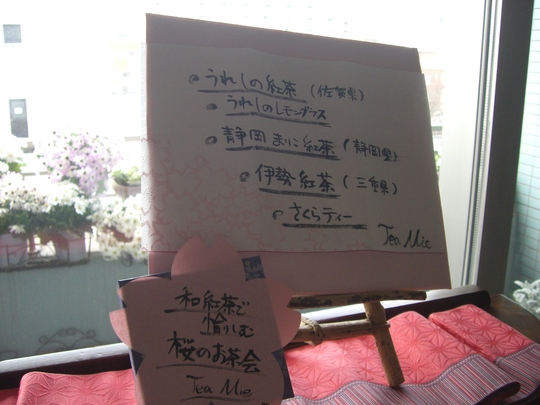 ●うれしの紅茶（佐賀県）
●うれしのレモングラス
●静岡まりこ紅茶（静岡県）
●伊勢紅茶（三重県）
●さくらティー
Tea Mie
和紅茶で
愉しむ
桜のお茶会
Tea Mie